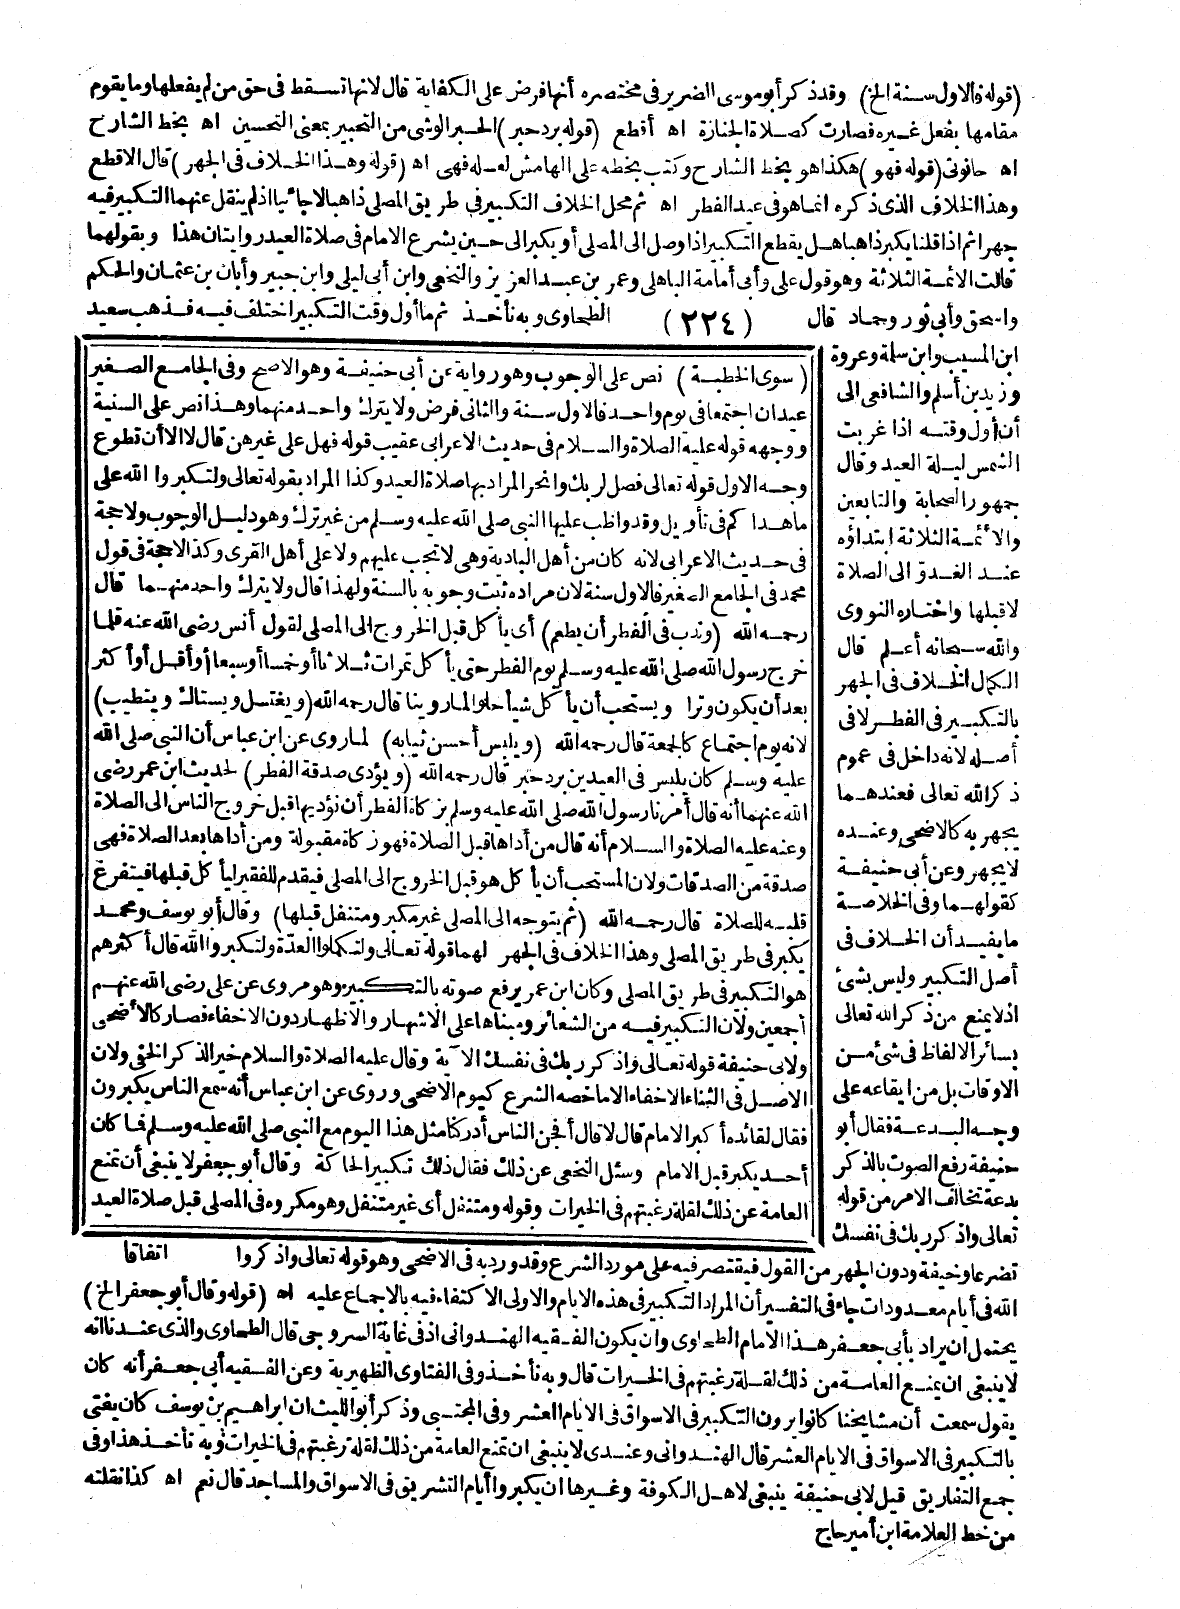 (قوله فالاول سنة الخ) وقد ذكر أبو موسى الضرير في مختصره أنها فرض على الكفاية قال لانها تسقط في حق من لم يفعلها وما يقوم
مقامها بفعل غيره فصارت كصلاة الجنازة اه أقطع (قوله برد حبر) الحبر الوشى من التحبير بمعنى التحسين اه بخط الشارح
اه حانوتى (قوله فهو) هكذا هو بخط الشارح وكتب بخطه على الهامش لعله فهى اه (قوله وهذا الخلاف في الجهر) قال الاقطع
وهذا الخلاف الذى ذكره انما هو في عيد الفطر اه ثم محل الخلاف التكبير في طريق المصلى ذاهبا لاجائيا اذ لم ينقل عنهما التكبير فيه
جهرا ثم اذا قلنا يكبر ذاهبا هل يقطع التكبير اذا وصل الى المصلى أو يكبر الى حين يشرع الامام في صلاة العيد روايتان هذا وبقولهما
قالت الائمة الثلاثة وهو قول على وأبى أمامة الباهلى وعمر بن عبد العزيز والنخعى وابن أبى ليلى وابن جبير وأبان بن عثمان والحكم
واسحق وأبى ثور وحماد قال (٢٢٤) الطحاوى وبه نأخذ ثم ما أول وقت التكبير اختلف فيه فذهب سعيد
ابن المسيب وابن سلة وعروة
وزيد بن أسلم والشافعى الى
أن أول وقته اذا غربت
الشمس ليلة العيد وقال
جمهور الصحابة والتابعين
والأئمة الثلاثة ابتداؤه
عند الغدو الى الصلاة
لا قبلها واختاره النووى
والله سبحانه أعلم قال
الكمال الخلاف في الجهر
بالتكبير في الفطر لا في
أصله لانه داخل في عموم
ذكر الله تعالى فعندهما
يجهر به كالاضحى وعنده
لا يجهر وعن أبى حنيفة
كقولهما وفى الخلاصة
ما يفيد أن الخلاف في
أصل التكبير وليس بشئ
اذ لا يمنع من ذكر الله تعالى
بسائر الالفاظ في شئ من
الاوقات بل من ايقاعه على
وجه البدعة فقال أبو
حنيفة رفع الصوت بالذكر
بدعة تخالف الامر من قوله
تعالى واذكر ربك في نفسك
(سوى الخطبة) نص على الوجوب وهو رواية عن أبى حنيفة وهو الاصح وفى الجامع الصغير
عيدان اجتمعا في يوم واحد فالاول سنة والثانى فرض ولا يترك واحد منهما وهذا نص على السنية
ووجهه قوله عليه الصلاة والسلام في حديث الاعرابى عقيب قوله فهل على غيرهن قال لا الا أن تطوع
وجه الاول قوله تعالى فصل لربك وانحر المراد بها صلاة العيد وكذا المراد بقوله تعالى ولتكبروا الله على
ما هداكم في تأويل وقد واظب عليها النبى صلى الله عليه وسلم من غير ترك وهو دليل الوجوب ولا حجة
في حديث الاعرابى لانه كان من أهل البادية وهى لا تجب عليهم ولا على أهل القرى وكذا لا حجة في قول
محمد في الجامع الصغير فالاول سنة لان مراده ثبت وجوبه بالسنة ولهذا قال ولا يترك واحد منهما قال
رحمه الله (وندب في الفطر أن يطعم) أى يأكل قبل الخروج الى المصلى لقول أنس رضى الله عنه قلما
خرج رسول الله صلى الله عليه وسلم يوم الفطر حتى يأكل تمرات ثلاثا أو خمسا أو سبعا أو أقل أو أكثر
بعد أن يكون وترا ويستحب أن يأكل شيأ حلوا لما روينا قال رحمه الله (ويغتسل ويستاك ويتطيب)
لانه يوم اجتماع كالجمعة قال رحمه الله (ويلبس أحسن ثيابه) لما روى عن ابن عباس أن النبى صلى الله
عليه وسلم كان يلبس في العيدين برد حبر قال رحمه الله (ويؤدى صدقة الفطر) لحديث ابن عمر رضى
الله عنهما أنه قال أمرنا رسول الله صلى الله عليه وسلم بزكاة الفطر أن نؤديها قبل خروج الناس الى الصلاة
وعنه عليه الصلاة والسلام أنه قال من أداها قبل الصلاة فهو زكاة مقبولة ومن أداها بعد الصلاة فهى
صدقة من الصدقات ولان المستحب أن يأكل هو قبل الخروج الى المصلى فيقدم للفقير ليأكل قبلها فيتفرغ
قلبه للصلاة قال رحمه الله (ثم يتوجه الى المصلى غير مكبر ومتنفل قبلها) وقال أبو يوسف ومحمد
يكبر في طريق المصلى وهذا الخلاف في الجهر لهما قوله تعالى ولتكملوا العدة ولتكبروا الله قال أكثرهم
هو التكبير في طريق المصلى وكان ابن عمر يرفع صوته بالتكبير وهو مروى عن على رضى الله عنهم
أجمعين ولان التكبير فيه من الشعائر ومبناها على الاشتهار والاظهار دون الاخفاء فصار كالأضحى
ولابى حنيفة قوله تعالى واذكر ربك في نفسك الآية وقال عليه الصلاة والسلام خير الذكر الخفى ولان
الاصل في الثناء الاخفاء الا ما خصه الشرع كيوم الاضحى وروى عن ابن عباس أنه سمع الناس يكبرون
فقال لقائده أكبر الامام قال لا قال أفجن الناس أدركنا مثل هذا اليوم مع النبى صلى الله عليه وسلم فما كان
أحد يكبر قبل الامام وسئل النخعى عن ذلك فقال ذلك تكبير الحاكة وقال أبو جعفر لا ينبغى أن تمنع
العامة عن ذلك لقلة رغبتهم في الخيرات وقوله ومتنفل أى غير متنفل وهو مكروه في المصلى قبل صلاة العيد
اتفاقا
تضرعا وخيفة ودون الجهر من القول فيقتصر فيه على مورد الشرع وقد ورد به في الاضحى وهو قوله تعالى واذكروا
الله في أيام معدودات جاء في التفسير أن المراد التكبير في هذه الايام والاولى الاكتفاء فيه بالاجماع عليه اه (قوله وقال أبو جعفر الخ)
يحتمل ان يراد بأبى جعفر هذا الامام الطحاوى وان يكون الفقيه الهندوانى اذ في غاية السروجى قال الطحاوى والذى عندنا انه
لا ينبغى ان يمنع العامة من ذلك لقلة رغبتهم في الخيرات قال وبه نأخذ وفى الفتاوى الظهيرية وعن الفقيه أبى جعفر أنه كان
يقول سمعت أن مشايخنا كانوا يرون التكبير في الاسواق في الايام العشر وفى المجتبى وذكر أبو الليث ان ابراهيم بن يوسف كان يفتى
بالتكبير في الاسواق في الايام العشر قال الهندوانى وعندى لا ينبغى ان تمنع العامة من ذلك لقلة رغبتهم في الخيرات وبه نأخذ هذا وفى
جمع التفاريق قيل لابى حنيفة ينبغى لاهل الكوفة وغيرها ان يكبروا أيام التشريق في الاسواق والمساجد قال نعم اه كذا نقلته
من خط العلامة ابن أمير حاج